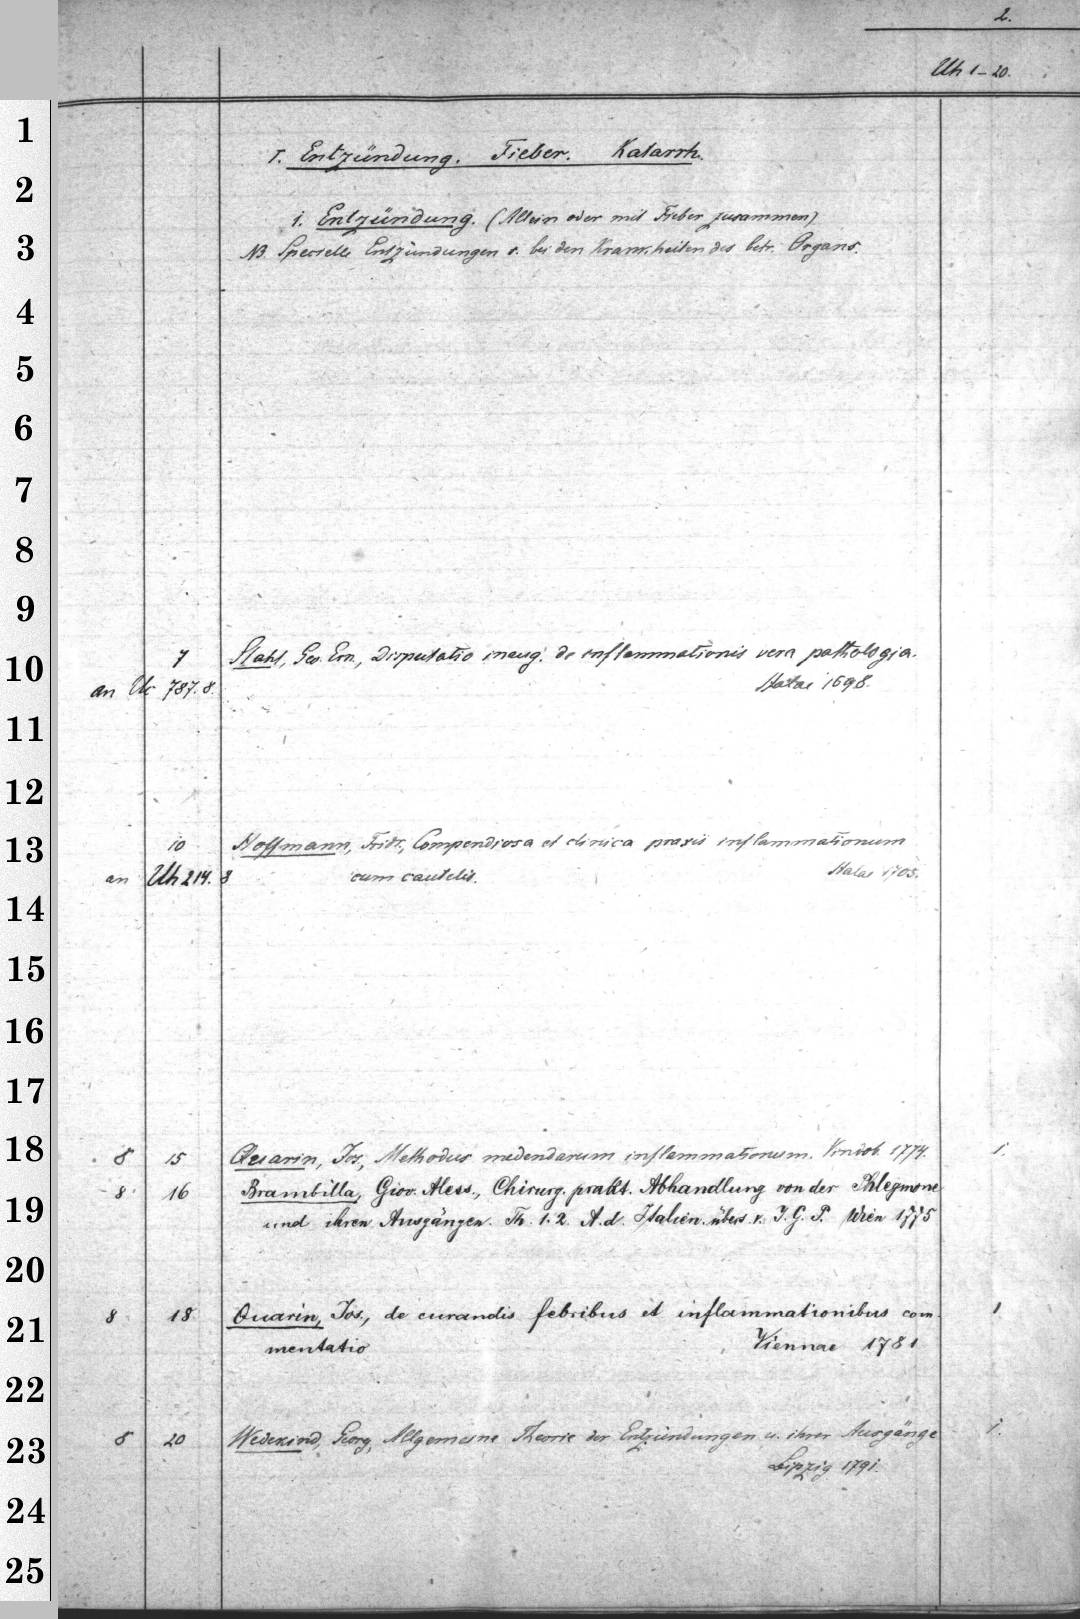 2.
Uh 1-20.
1
I. Entzündung. Fieber. Katarrh.
2
1. Entzündung. (Allein oder mit Fieber zusammen)
3
NB. Specielle Entzündungen s. bei den Krankheiten des betr. Organs.
4
5
6
7
8
9
10
7 Stahl, Geo. Ern., Disputatio inaug. de inflammationis vera pathologia.
an Uc 787. 8. Halae 1698.
11
12
13
10 Hoffmann, Fridr., Compendiosa et clinica praxis inflammationum
an Uh 214. 8 cum cautelis. Halae 1705.
14
15
16
17
18
8 15 Quarin, Jos., Methodus medendarum inflammationum. Vindob. 1774. 1.
8 16 Brambilla, Giov. Aless., Chirurg. prakt. Abhandlung von der Phlegmone
19
und ihren Ausgängen. Th. 1. 2. A. d. Italien. übers. v. J. G. P. Wien 1775
20
8 18 Quarin, Jos., de curandis febribus et inflammationibus com- 1
21
mentatio Viennae 1781
22
8 20 Wedekind, Georg, Allgemeine Theorie der Entzündungen u. ihrer Ausgänge 1.
23
Leipzig 1791.
24
25